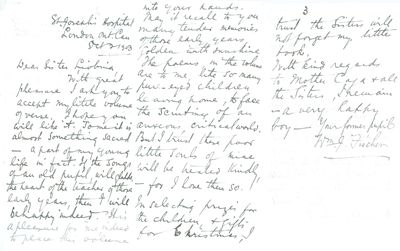 St. Joseph's Hospital
London Ont. Can
Oct 2 1903
Dear Sister
With great
pleasure I ask you to
accept my little volume
of verse. I hope you
will like it. Some it is
almost something sacred
— a part of my young
life in fact. If the songs
of an old pupil will gladden
the heart of the teacher of those
early years, then I will
be happy indeed. It is
a pleasure for me indeed
to place this volume
into your hands.
May it recall to you
many tender memories
of those early years
golden with sunshine
The poems, in the volume
are to me, like so many
pure-eyed children
leaving home, to face
the scrutiny of an
anxious, critical world.
But I trust these poor
little souls of mine
will be treated kindly,
— for I love them so.
In selecting prizes for
the children, & gifts
for Christmas, I
3
trust the Sisters will
not forget my little
book.
With kind regards
to Mother & all
the Sisters, I remain
— a very happy
boy — Your former pupil
Wm J. Fischer